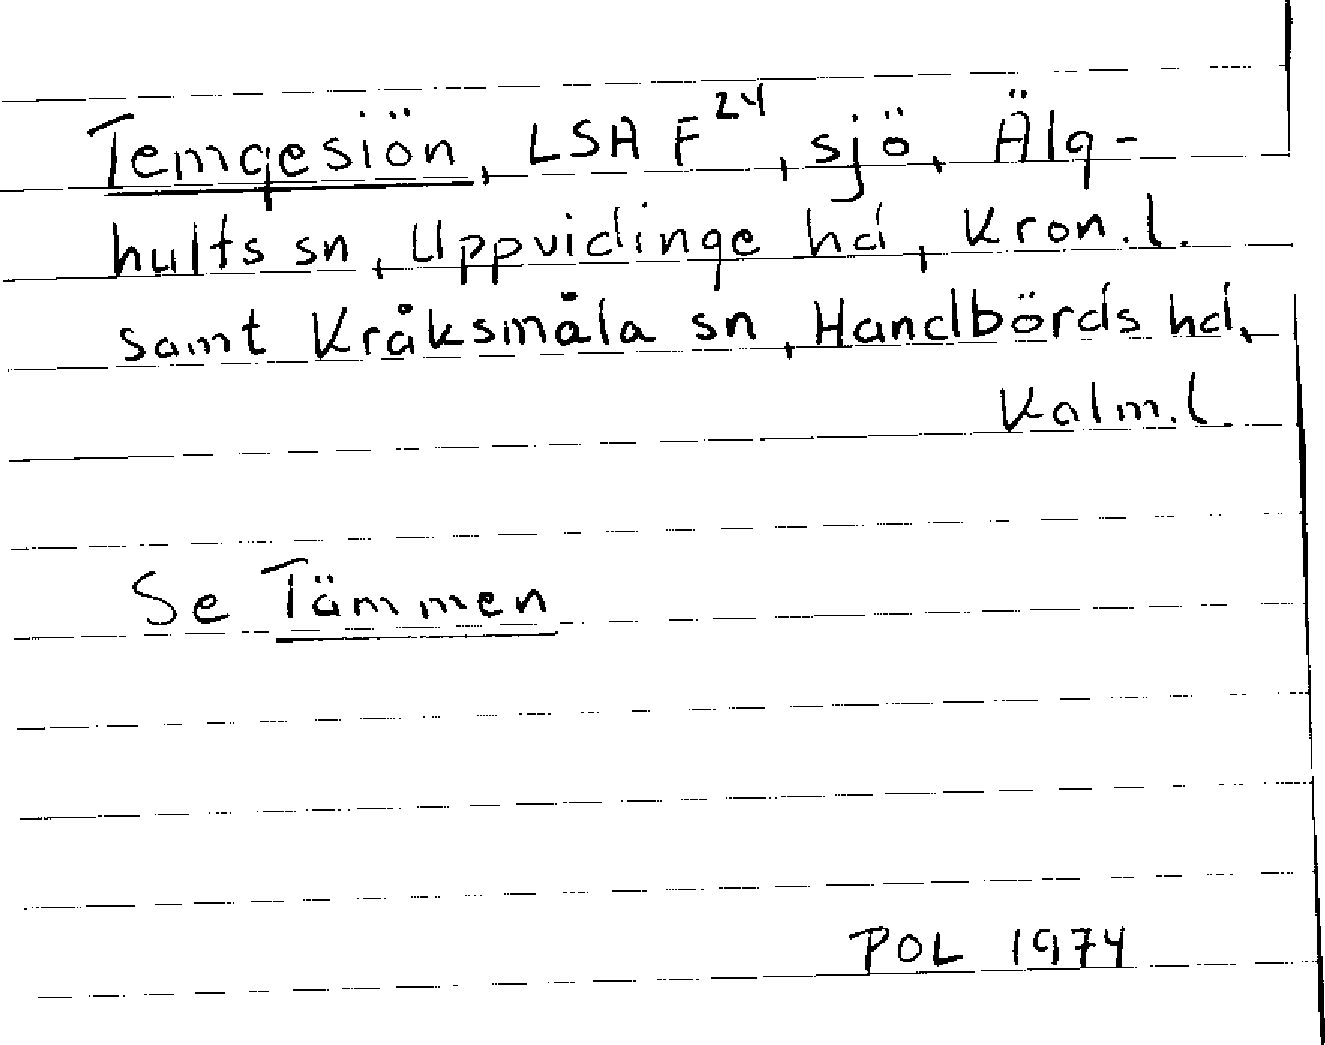 Temgesiön, LSA F24, sjö, Älg-
hults sn, Uppvidinge hd, Kron.l.
samt Kråksmåla sn, Handbörds hd,
Kalm.l
Se Tämmen
POL 1974